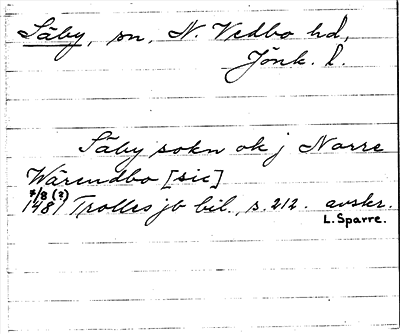 Säby, sn, N. Vedbo hd,
Jönk. l.
Säby sokn ok j Norre
Wärendbo [sic]
7/8 (?)
1487 Trolles jb bil., s. 212. avskr.
L. Sparre.